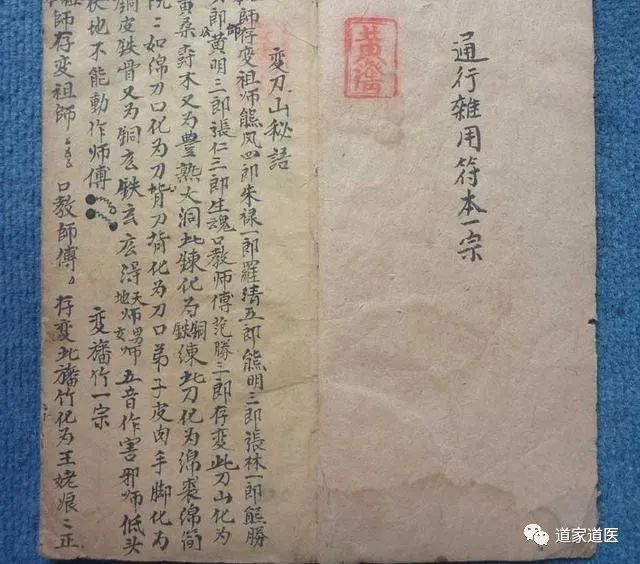 通行雜用符本一宗
变刀山秘語
師存变祖师熊凤四郎朱禄一郎羅清五郎熊明三郎張林一郎熊勝
郎黄明三郎張仁三郎生魂口教师傅范勝三郎存变此刀山化为
黄桑壽木又为豊熟大洞北錬化为銅鉄練北刀化为綿裘綿筒
院二如綿刀口化为刀背刀背化为刀口弟子皮肉手脚化为
銅皮鉄骨又为銅玄鉄玄玄淂天师男师地 五音作害邪师低头
伏地也不能動作师傅
变旛竹一宗
師存变祖師 口教師傅 存变北旛竹化为王姥娘二正
道家道医